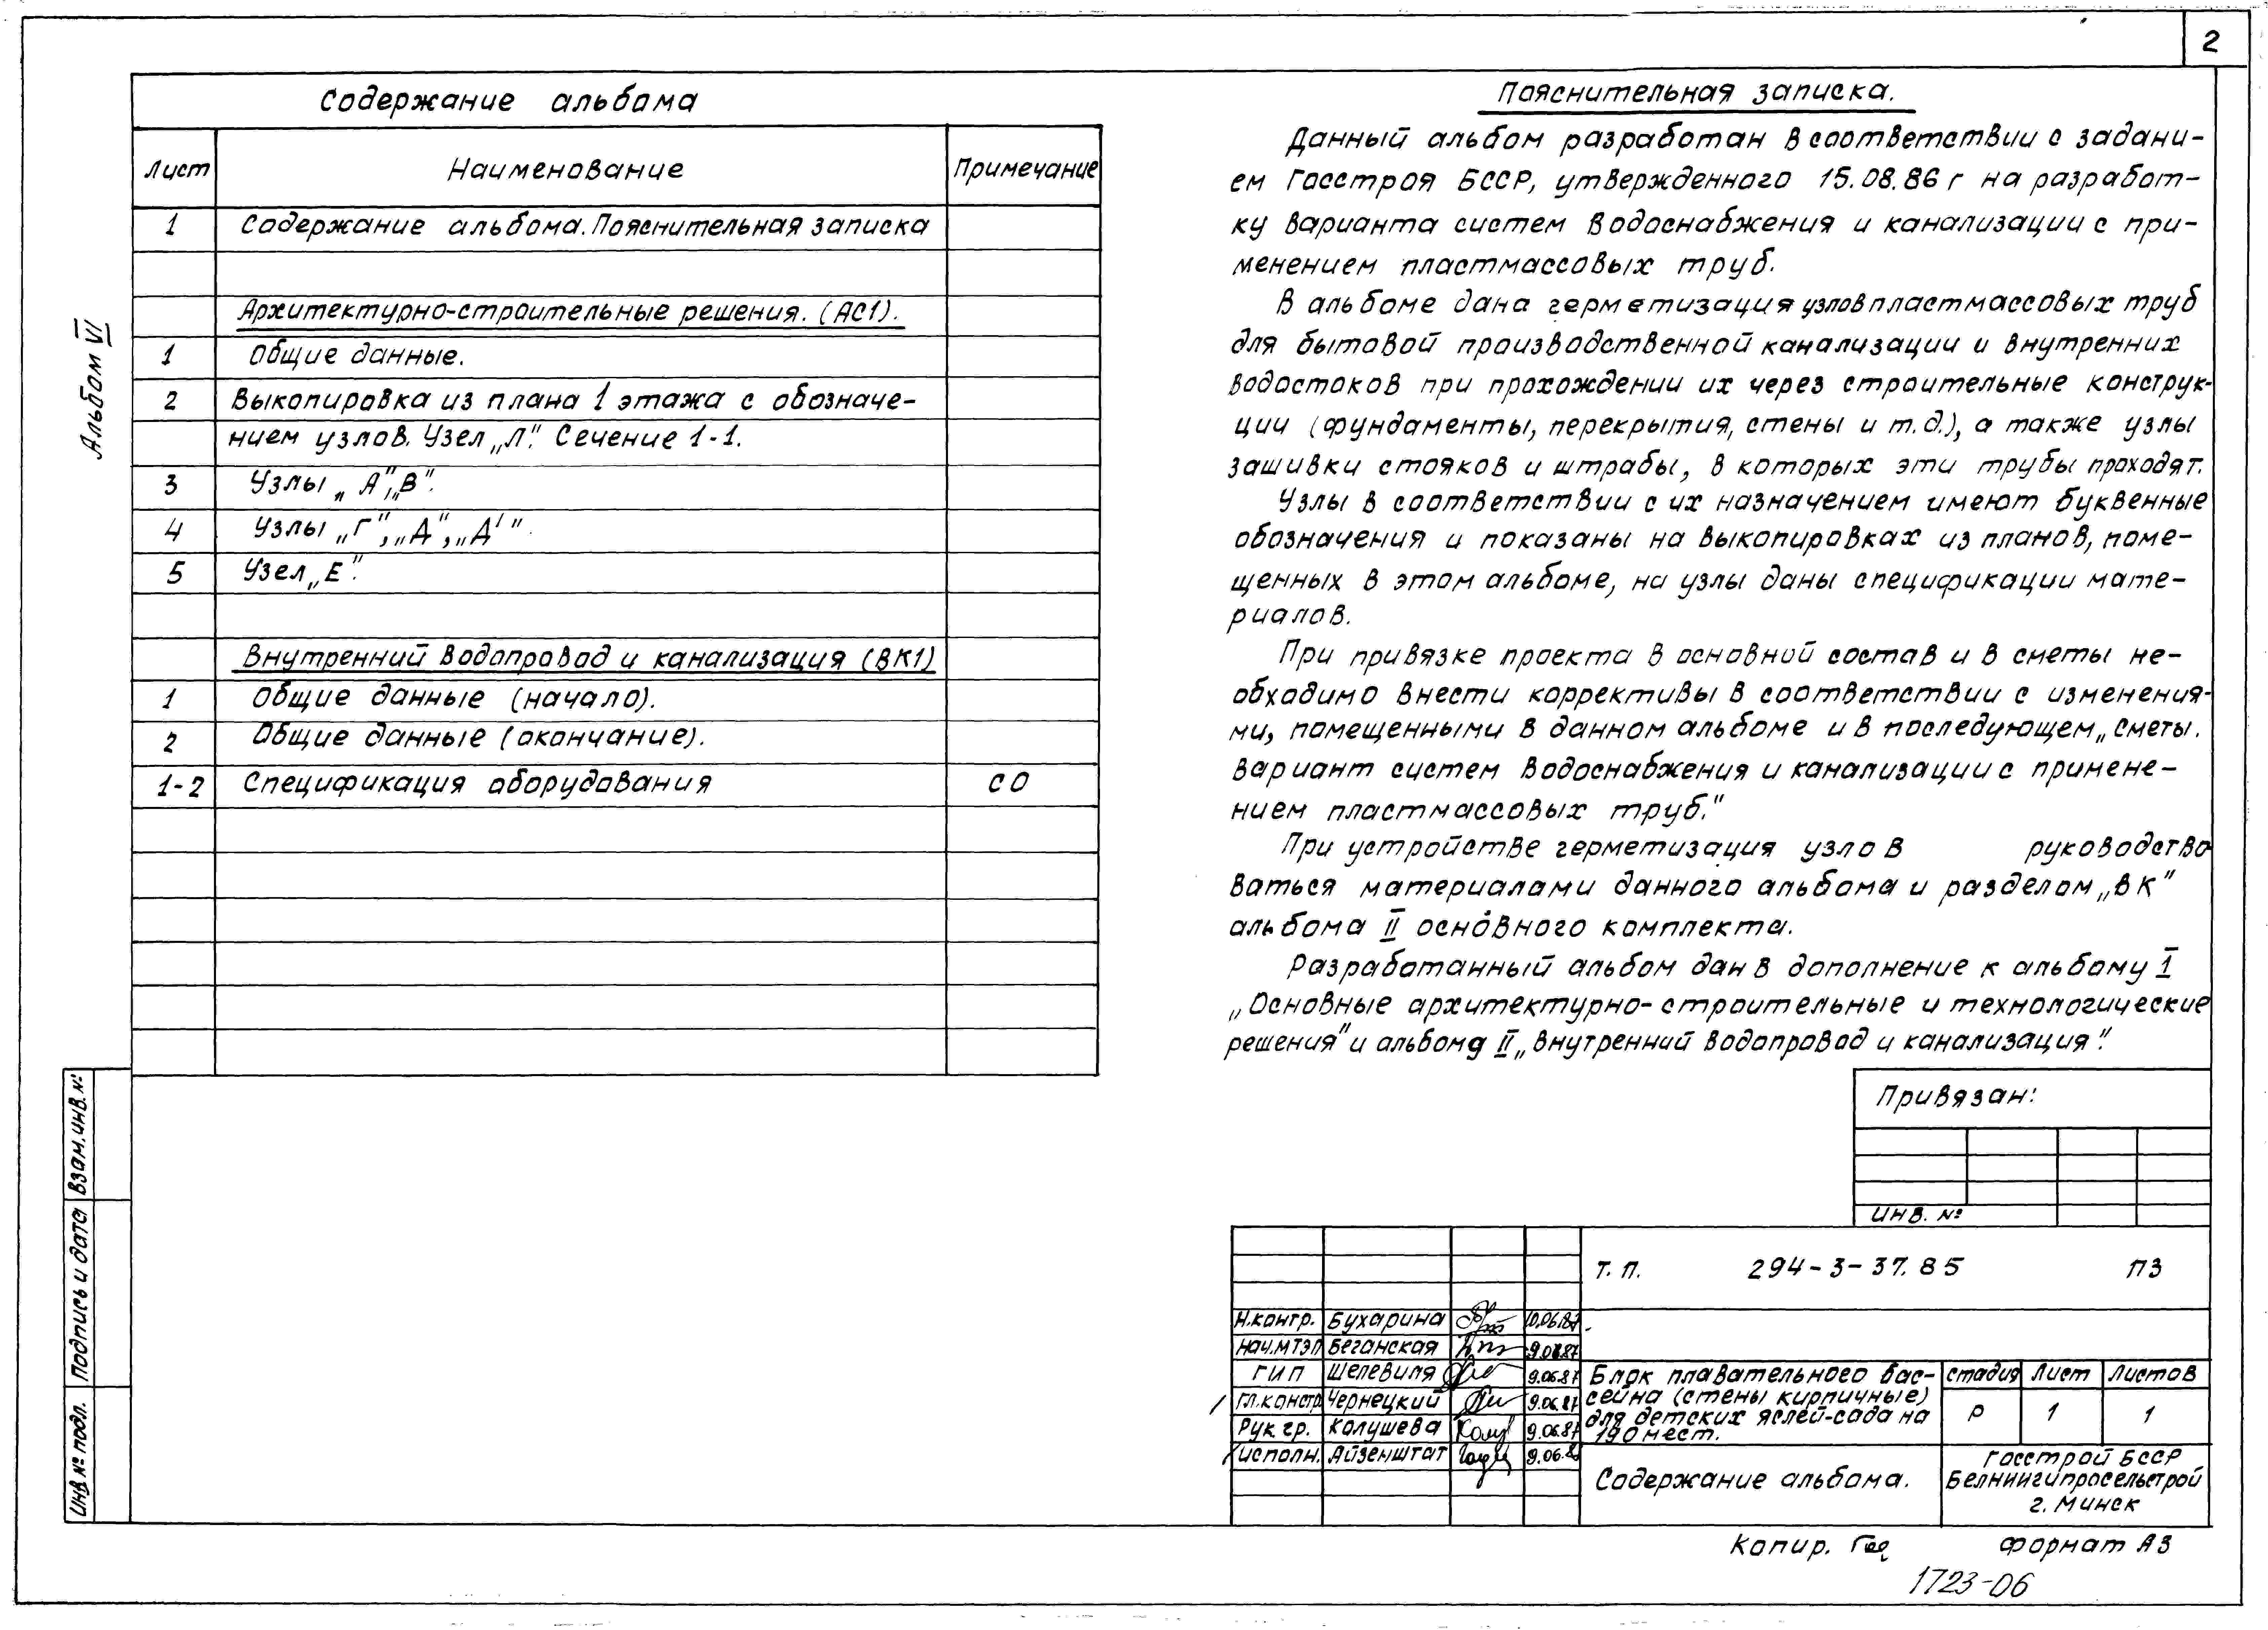 2
Содержание альбома
Лист Наименование Примечание
1 Содержание альбома. Пояснительная записка
Архитектурно-строительные решения. (АС1).
1 Общие данные.
2 Выкопировка из плана 1 этажа с обозначе-
нием узлов. Узел „Л". Сечение 1-1.
3 Узлы „А", „В".
4 Узлы „Г", „Д", „Д'".
5 Узел „Е".
Внутренний водопровод и канализация (ВК1)
1 Общие данные (начало).
2 Общие данные (окончание).
1-2 Спецификация оборудования СО
Альбом VI
Пояснительная записка.
Данный альбом разработан в соответствии с задани-
ем Госстроя БССР, утвержденного 15.08.86 г на разработ-
ку варианта систем водоснабжения и канализации с при-
менением пластмассовых труб.
В альбоме дана герметизация узлов пластмассовых труб
для бытовой производственной канализации и внутренних
водостоков при прохождении их через строительные конструк-
ции (фундаменты, перекрытия, стены и т.д.), а также узлы
зашивки стояков и штрабы, в которых эти трубы проходят.
Узлы в соответствии с их назначением имеют буквенные
обозначения и показаны на выкопировках из планов, поме-
щенных в этом альбоме, на узлы даны спецификации мате-
риалов.
При привязке проекта в основной состав и в сметы не-
обходимо внести коррективы в соответствии с изменения-
ми, помещенными в данном альбоме и в последующем „Сметы.
Вариант систем водоснабжения и канализации с примене-
нием пластмассовых труб."
При устройстве герметизация узлов руководство
ваться материалами данного альбома и разделом „ВК"
альбома II основного комплекта.
Разработанный альбом дан в дополнение к альбому I
„Основные архитектурно-строительные и технологические
решения" и альбому II „Внутренний водопровод и канализация".
Привязан:
Инв. №
Т. П. 294-3-37.85 ПЗ
Н.контр. Бухарина 10.06.87
Нач.МТЭП Беганская 9.06.87
ГИП Шелевиля 9.06.87
Гл.констр. Чернецкий 9.06.87
Рук гр. Колушева 9.06.87
Исполн. Айзенштат 9.06.8
Блок плавательного бас-
сейна (стены кирпичные)
для детских яслей-сада на
190 мест.
Стадия Лист Листов
Р 1 1
Содержание альбома.
Госстрой БССР
Белниигипросельстрой
г. Минск
Взам. инв. №
Подпись и дата
Инв № подл.
Копир. Формат А3
1723-06